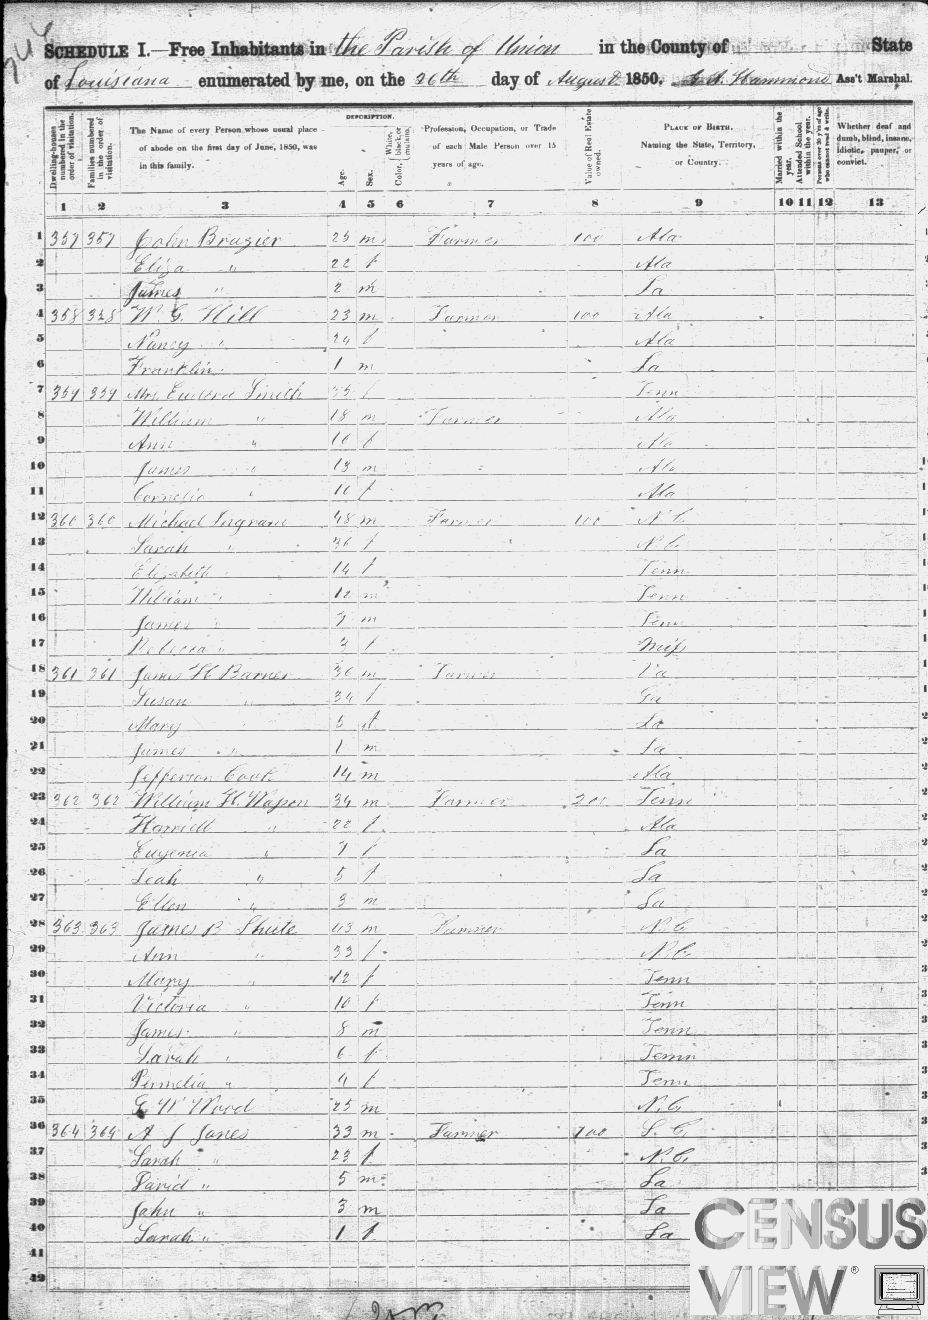 SCHEDULE I.—Free Inhabitants in the Parish of Union in the County of State
of Louisiana enumerated by me, on the 26th day of August 1850. Hammond Ass't Marshal.
Dwelling-houses numbered in the order of visitation.
Families numbered in the order of visitation.
The Name of every Person whose usual place of abode on the first day of June, 1850, was in this family.
DESCRIPTION.
Age.
Sex.
Color, White, black, or mulatto.
Profession, Occupation, or Trade of each Male Person over 15 years of age.
Value of Real Estate owned.
PLACE OF BIRTH. Naming the State, Territory, or Country.
Married within the year.
Attended School within the year.
Persons over 20 y'rs of age who cannot read & write.
Whether deaf and dumb, blind, insane, idiotic, pauper, or convict.
1 2 3 4 5 6 7 8 9 10 11 12 13
1 357 357 John Brazier 25 m Farmer 100 Ala
2 Eliza " 22 f Ala
3 James " 2 m La
4 358 358 W. G. Hill 23 m Farmer 100 Ala
5 Nancy " 24 f Ala
6 Franklin 1 m La
7 359 359 Mrs Smith 35 f Tenn
8 William " 18 m Farmer Ala
9 Ann " 16 f Ala
10 James " 13 m Ala
11 Cornelia " 10 f Ala
12 360 360 Michael Ingram 48 m Farmer 100 N.C.
13 Sarah " 36 f N.C.
14 Elizabeth " 14 f Tenn
15 William " 12 m Tenn
16 James " 7 m Tenn
17 Rebecca " 3 f Miss
18 361 361 James H Barner 36 m Farmer Va
19 Susan " 34 f Ga
20 Mary " 5 f La
21 James " 1 m La
22 Jefferson Cook 14 m Ala
23 362 362 William H. Wason 34 m Farmer 200 Tenn
24 Harriett " 22 f Ala
25 Eugenia " 7 f La
26 Leah " 5 f La
27 Ellen " 3 m La
28 363 363 James B Shute 43 m Farmer N.C.
29 Ann " 33 f N.C.
30 Mary " 12 f Tenn
31 Victoria " 10 f Tenn
32 James " 8 m Tenn
33 Sarah " 6 f Tenn
34 Permelia " 4 f Tenn
35 G W Wood 25 m N.C.
36 364 364 A J Jones 33 m Farmer 700 S.C.
37 Sarah " 23 f N.C.
38 David " 5 m La
39 John " 3 m La
40 Sarah " 1 f La
41
42
CENSUS
VIEW®